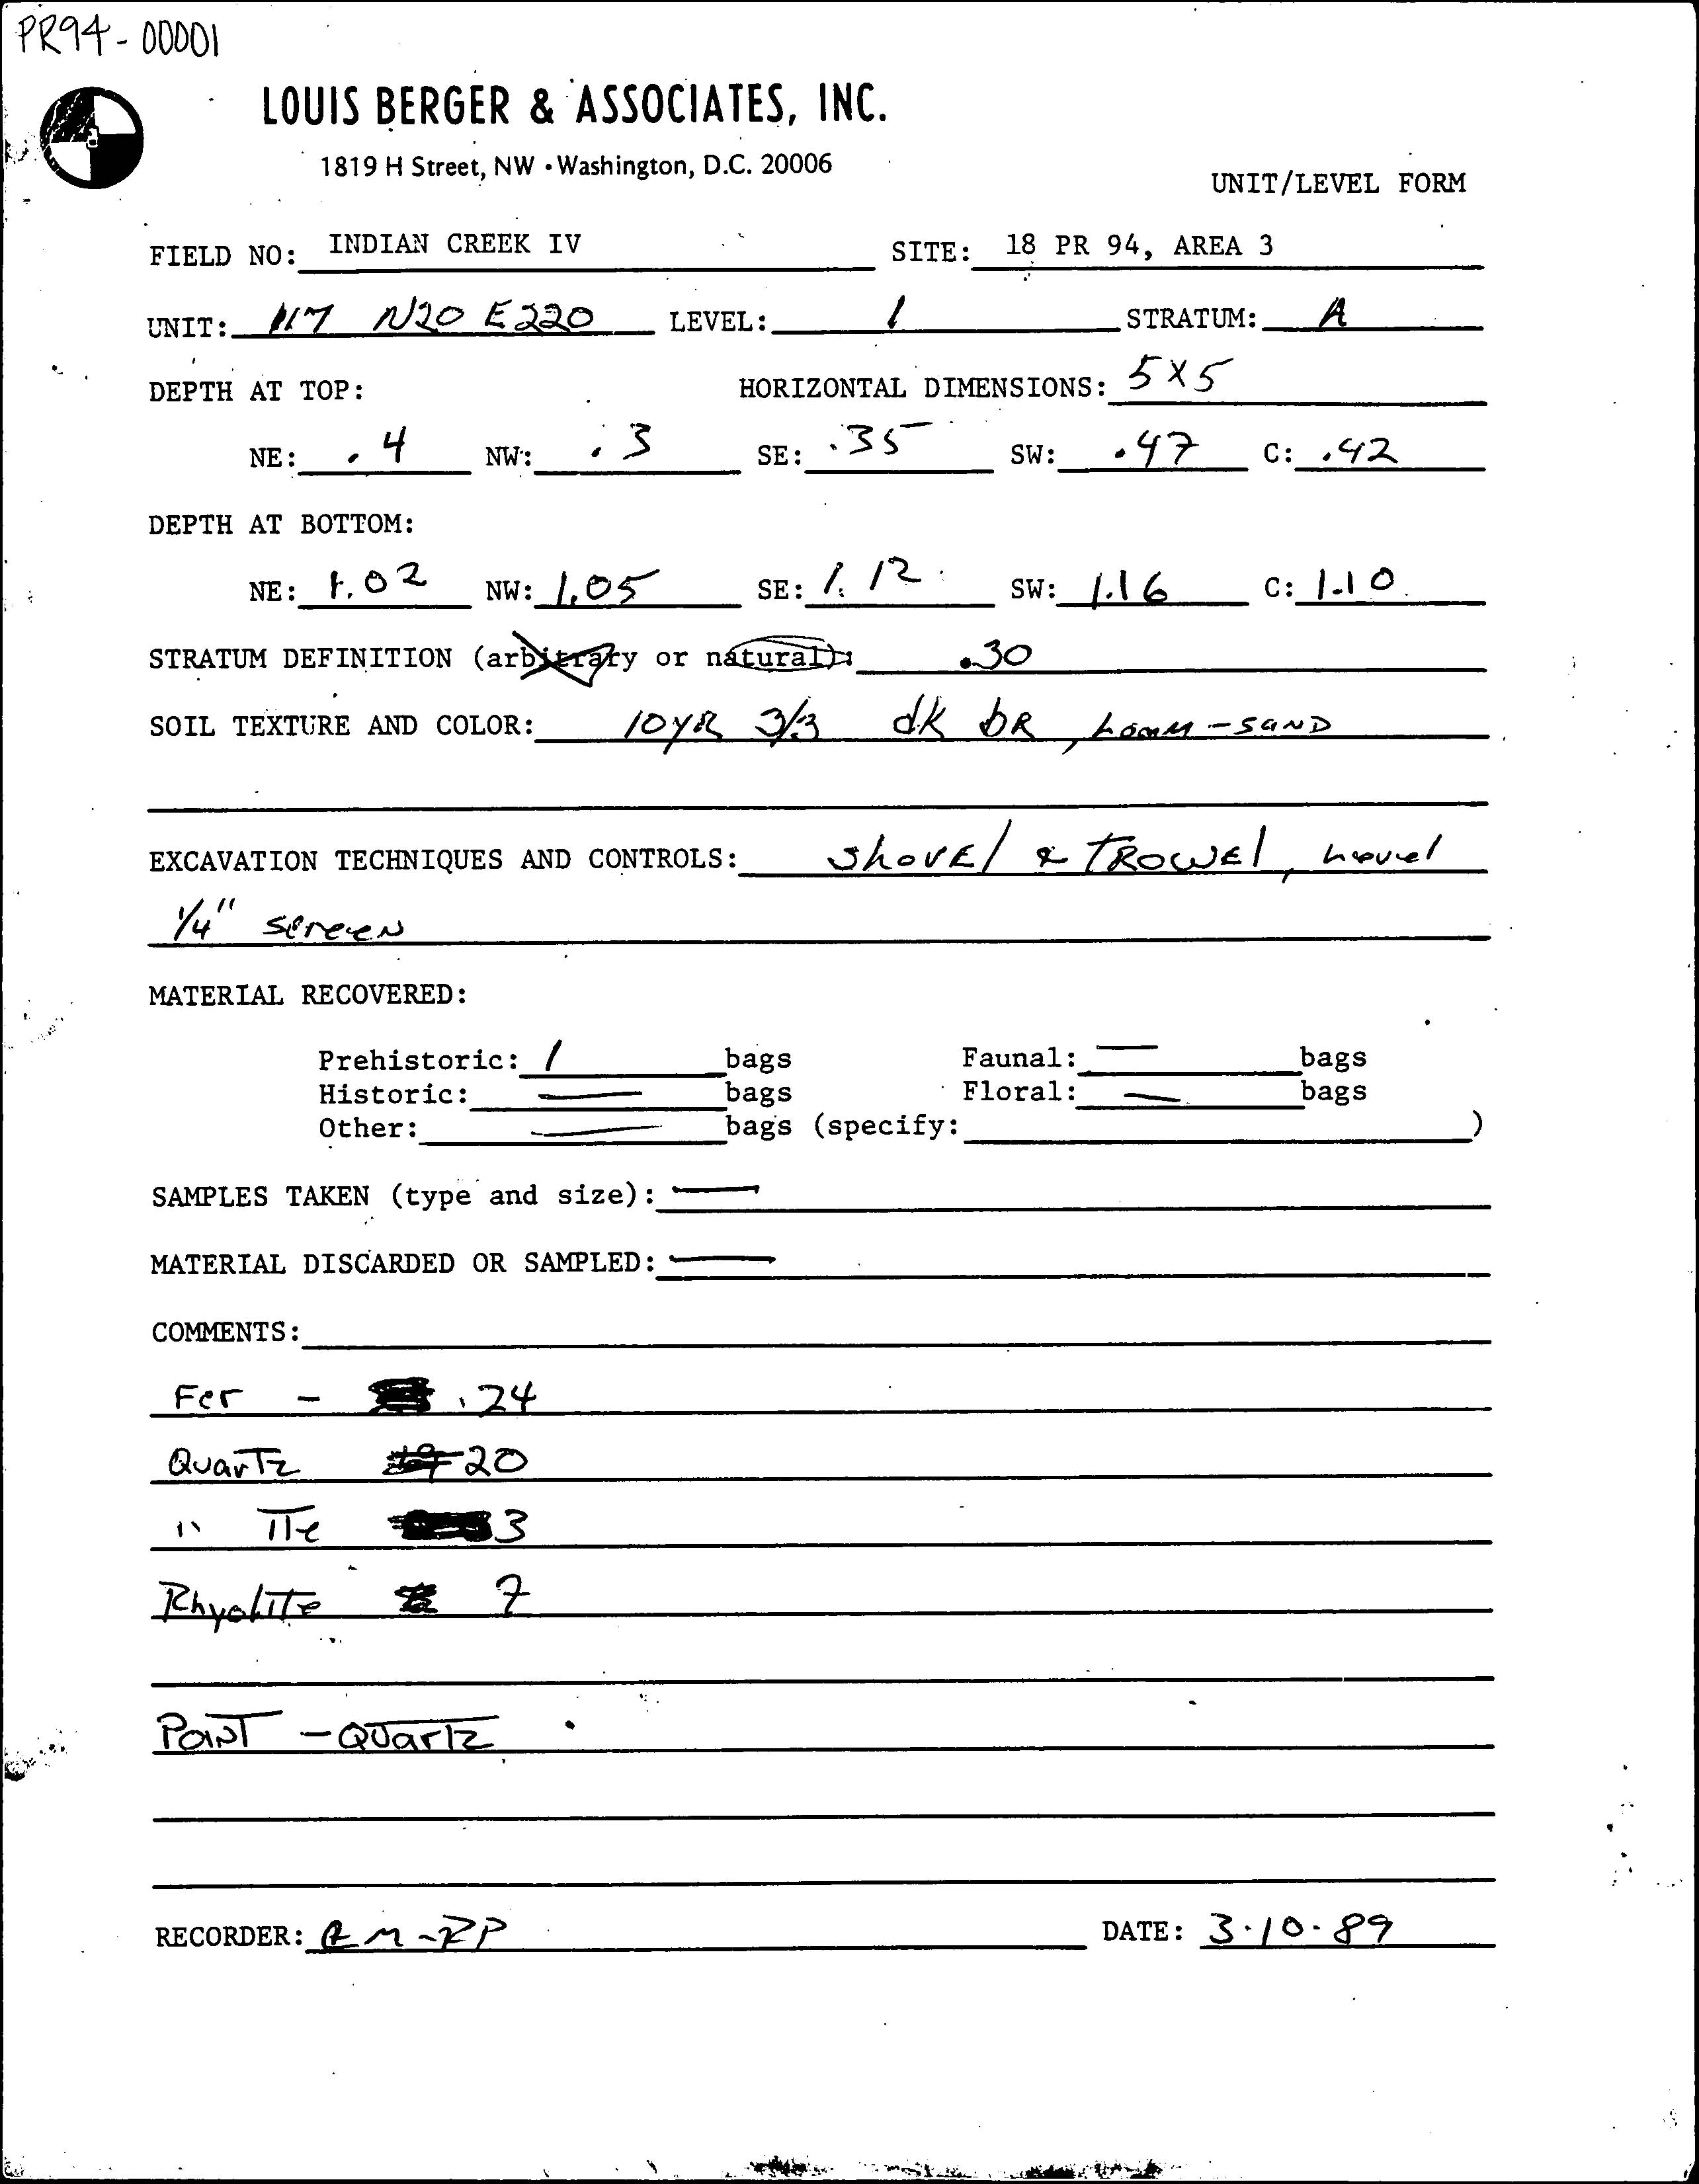 PR94-00001
LOUIS BERGER & ASSOCIATES, INC.
1819 H Street, NW • Washington, D.C. 20006
UNIT/LEVEL FORM
FIELD NO: INDIAN CREEK IV SITE: 18 PR 94, AREA 3
UNIT: 117 N20 E220 LEVEL: 1 STRATUM: A
DEPTH AT TOP: HORIZONTAL DIMENSIONS: 5X5
NE: .4 NW: .3 SE: .35 SW: .47 C: .42
DEPTH AT BOTTOM:
NE: 1.02 NW: 1.05 SE: 1.12 SW: 1.16 C: 1.10
STRATUM DEFINITION (arbitrary or natural): .30
SOIL TEXTURE AND COLOR: 10YR 3/3 dk bR, LoaM-SAND
EXCAVATION TECHNIQUES AND CONTROLS: ShovEl & TROWEl,
1/4" screen
MATERIAL RECOVERED:
Prehistoric: 1 bags Faunal: — bags
Historic: — bags Floral: — bags
Other: — bags (specify: )
SAMPLES TAKEN (type and size): —
MATERIAL DISCARDED OR SAMPLED: —
COMMENTS:
Fcr - .24
QuarTz 20
" ITe 3
RhyoliTe 7
PoinT - Quartz
RECORDER: DATE: 3.10.89